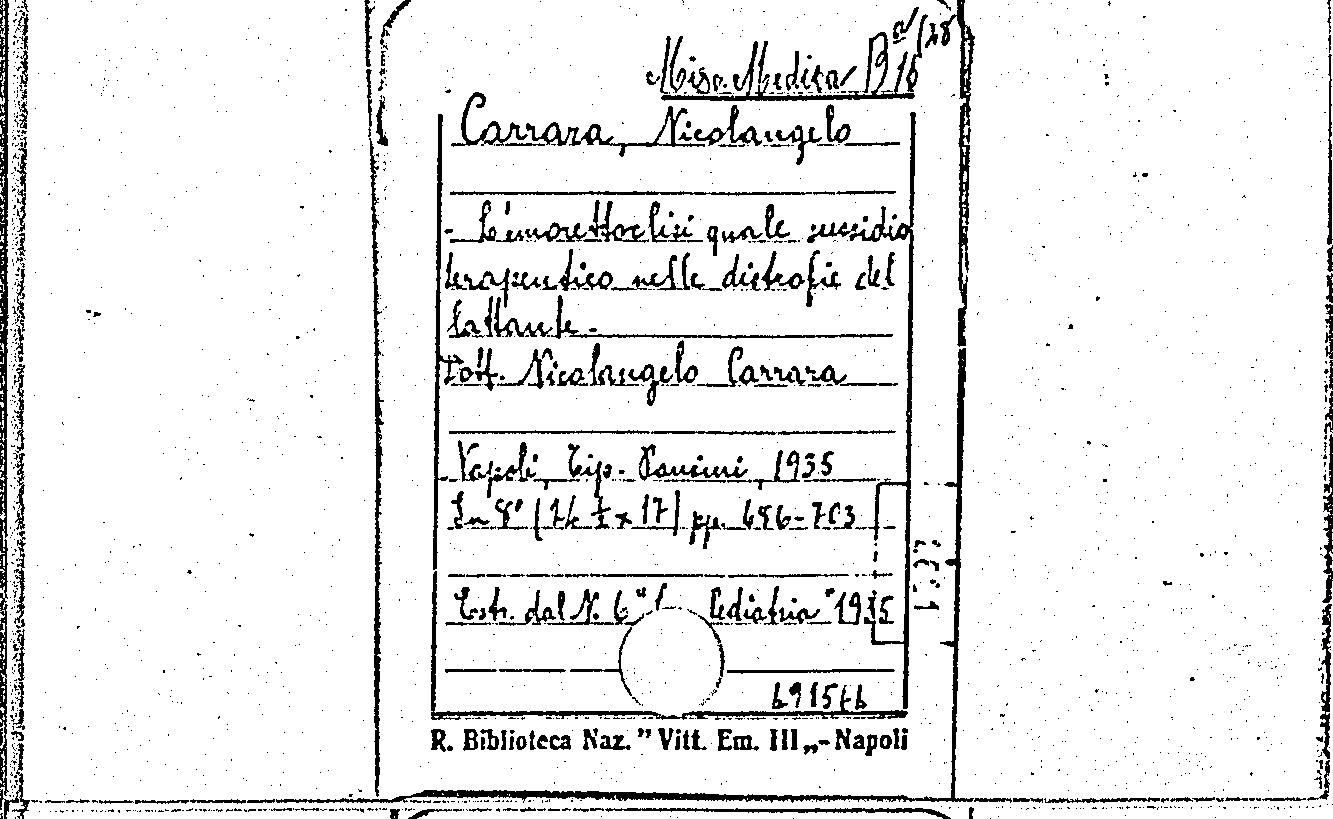 Misc. Medica B 16 a/(28
Carrara, Nicolangelo
- L'emorettoclisi quale sussidio
terapeutico nelle distrofie del
lattante -
Dott. Nicolangelo Carrara
Napoli, Tip. Pansini, 1935
In 8° (24 ½ x 17) pp. 686-703
Estr. dal N. 6 "L Pediatria" 1935
R. Biblioteca Naz. " Vitt. Em. III „ - Napoli